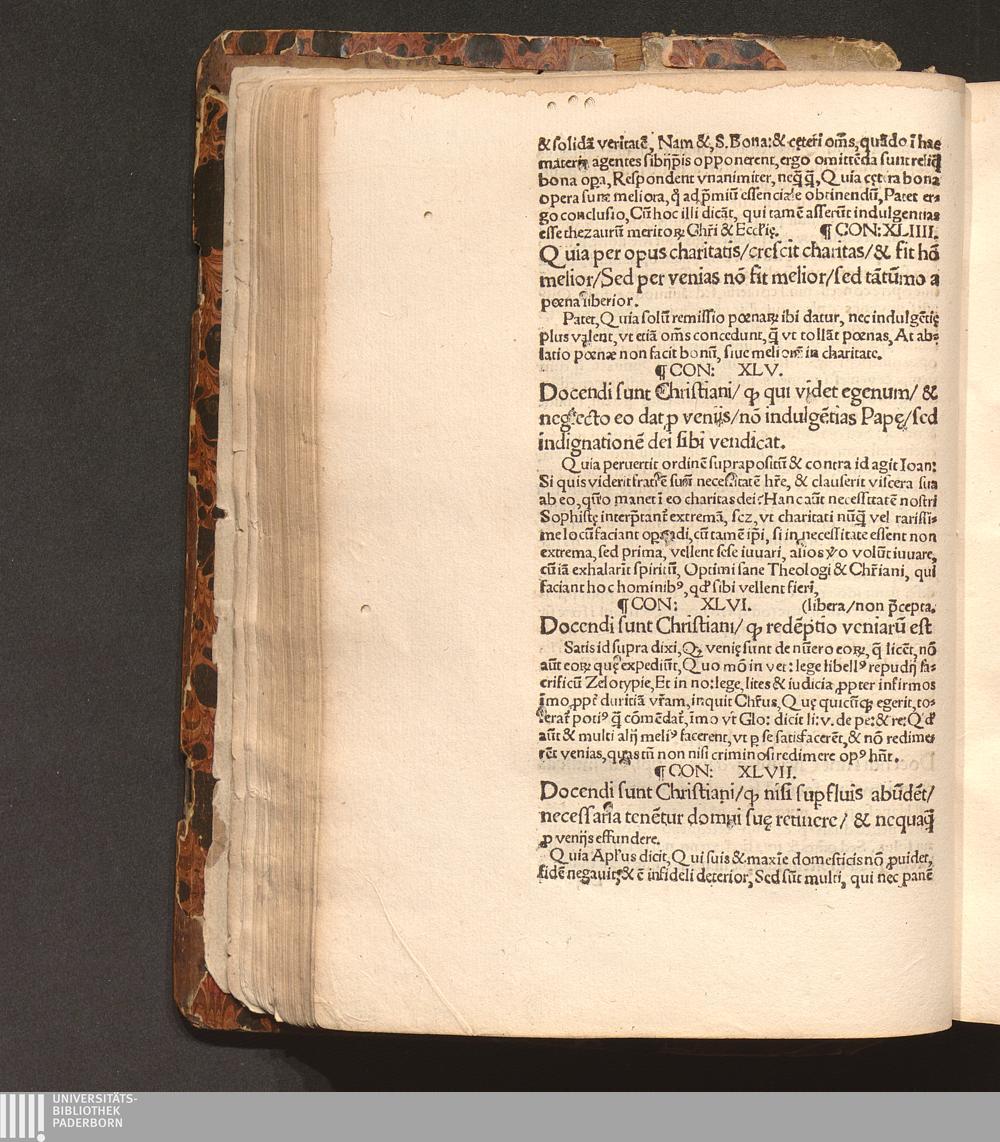 & solidā veritatē, Nam &, S. Bona: & cęteri om̄s, quādo ī hac
materia agentes sibijp̄is opponerent, ergo omittēda sunt reliq̄
bona oꝑa, Respondent vnanimiter, neq̄q̄, Quia cętera bona
opera sunt meliora, ad p̄miū essenciale obtinendū, Patet er-
go conclusio, Cū hoc illi dicāt, qui tamē asserūt indulgentias
esse thezaurū meritoꝝ Chr̄i & Eccl̄ię. ¶ CON: XLIIII.
Quia per opus charitatis/crescit charitas/& fit hō
melior/Sed per venias nō fit melior/sed tātūmo a
pœna liberior.
Patet, Quia solū remissio pœnaꝝ ibi datur, nec indulgētię
plus valent, vt etiā om̄s concedunt, q̄ vt tollāt pœnas, At ab-
latio pœnæ non facit bonū, siue meliorē in charitate.
¶ CON: XLV.
Docendi sunt Christiani/ ꝙ qui videt egenum/ &
neglecto eo dat ꝓ venijs/nō indulgētias Papę/sed
indignationē dei sibi vendicat.
Quia peruertit ordinē suprapositū & contra id agit Ioan:
Si quis viderit fratrē suū necessitatē hr̄e, & clauserit viscera sua
ab eo, quō manet ī eo charitas dei? Hanc aūt necessitatē nostri
Sophistę interp̄tant̄ extremā, scz, vt charitati nūq̄ vel rarissi-
me locū faciant oꝑandi, cū tamē ip̄i, si in necessitate essent non
extrema, sed prima, vellent sese iuuari, alios v̆o volūt iuuare,
cū iā exhalarīt spiritū, Optimi sane Theologi & Chr̄iani, qui
faciant hoc hominibꝰ, qd̕ sibi vellent fieri,
¶ CON: XLVI. (libera/non p̄cepta.
Docendi sunt Christiani/ ꝙ redēptio veniarū est
Satis id supra dixi, Qꝫ venię sunt de nūero eoꝝ, q̄ licēt, nō
aūt eoꝝ quę expediūt, Quo mō in vet: lege libellꝰ repudij sa-
crificiū Zelotypie, Et in no: lege, lites & iudicia ꝓpter infirmos
īmo ꝓpt̄ duritiā vr̄am, inquit Chr̄us, Quę quicūꝙ egerit, to-
lerat̄ potiꝰ q̄ cōmēdat̄, īmo vt Glo: dicit li: v. de pe: & re: Qd̕
aūt & multi alij meliꝰ facerent, vt ꝑ se satisfacerēt, & nō redime-
rēt venias, quas tn̄ non nisi criminosi redimere opꝰ hn̄t.
¶ CON: XLVII.
Docendi sunt Christiani/ ꝙ nisi suꝑfluis abūdēt/
necessaria tenētur domui suę retinere/ & nequaq̄
ꝓ venijs effundere.
Quia Apl̕us dicit, Qui suis & maxīe domesticis nō ꝓuidet,
fidē negauit, & ē infideli deterior, Sed sūt multi, qui nec panē
UNIVERSITÄTS-
BIBLIOTHEK
PADERBORN